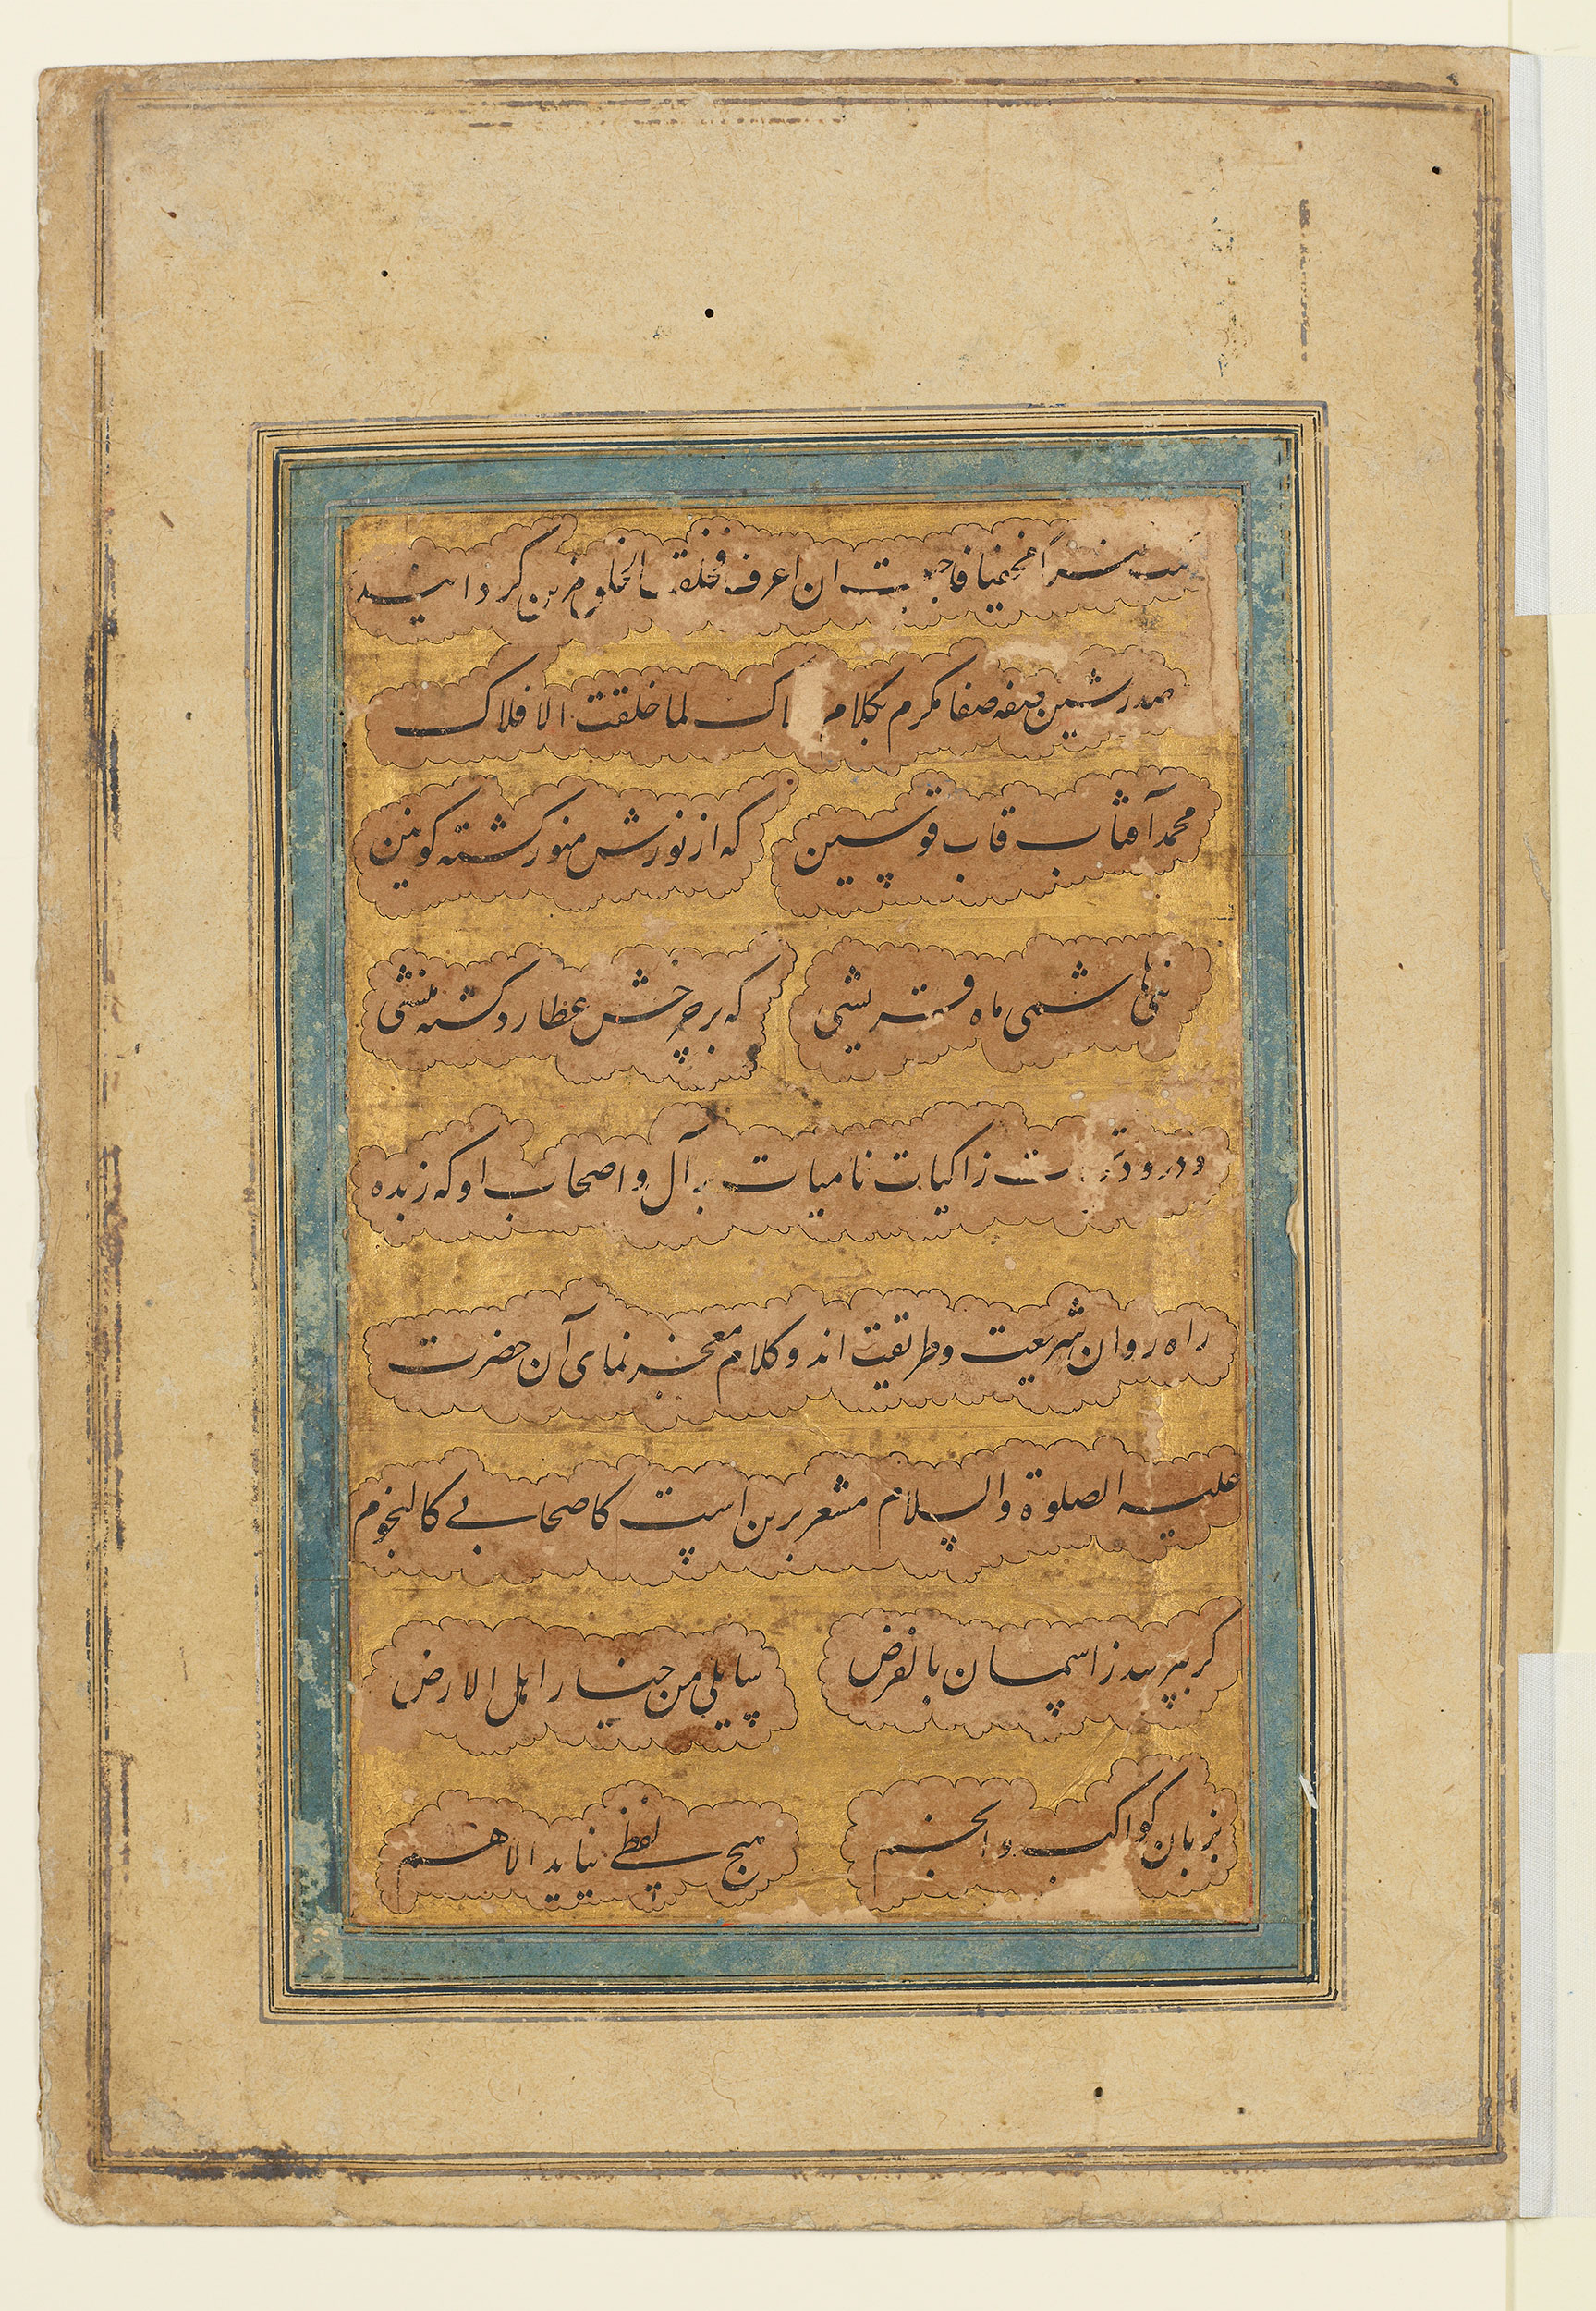 كنزاً مخفیا فاحببت ان اعرف فخلقت الخلق مزین گردانید
صدرنشین صفه صفا مکرم بکلام لولاک لما خلقت الافلاک
محمد آفتاب قاب قوسین که از نورش منور گشته کونین
نبی هاشمی ماه قریشی که بر چرخش عطارد گشته منشی
و درود زاکیات نامیات بر آل و اصحاب او که زبده
راه روان شریعت و طریقت اند و کلام معجز نمای آن حضرت
علیه الصلوة والسلام مشعر برین است که اصحابی کالنجوم
گر بپرسد ز اسمان بالفرض سایلی من خیار اهل الارض
بزبان کواکب و انجم هیچ لفظی نیاید الا هم